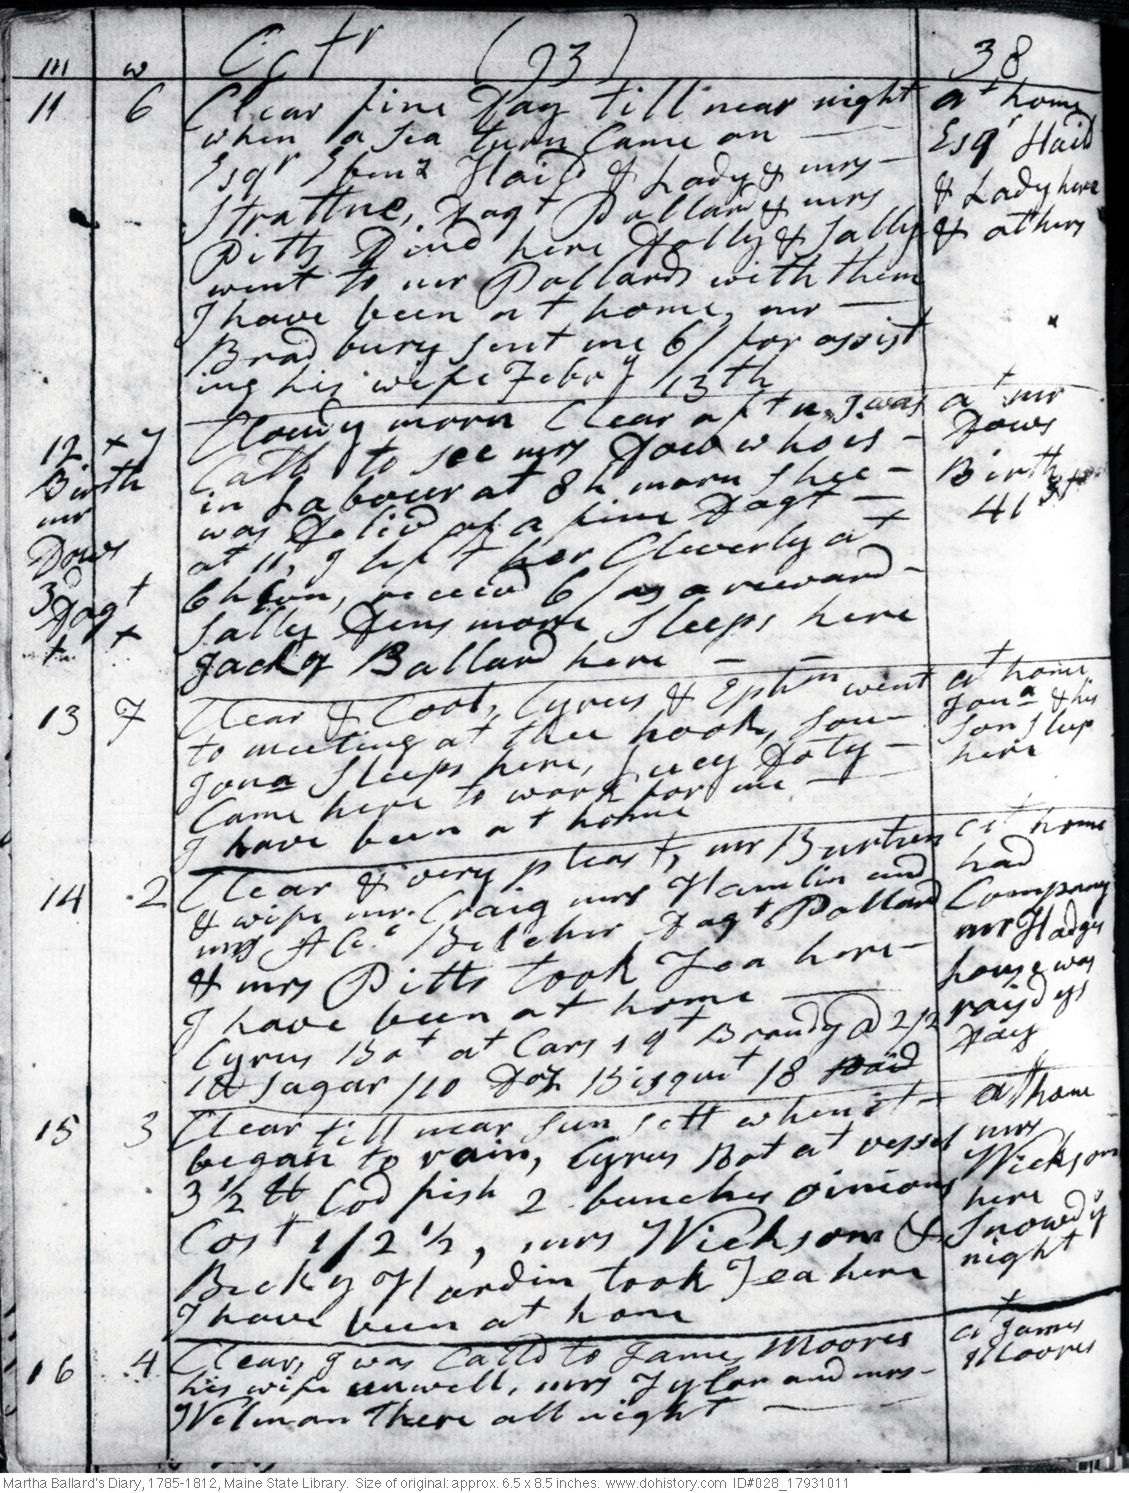 m w Octr (93) 38
11 6 Clear fine Day till near night
when a Sea turn Came on
Esqr Ebenz Haid & Lady & mrs
Strattne, Dagt Pollard & mrs
Pitts Dind here Dolly & Sally
went to mr Pollards with them
I have been at home, mr
Bradbury sent me 6/ for assist
ing his wife Febry 13th
at home
Esqr Haid
& Lady here
& others
12 x 7
Birth
mr
Dows
3d
Dagt
x x
Cloudy morn Clear aftn, I was
Calld to see mrs Dow who is
in Labour at 8 h morn Shee
was Delivd of a fine Dagt
at 11, I left her Cleverly at
6 h Evn, receivd 6/ as a reward
Sally Densmore Sleeps here
Jacky Ballard here
at mr
Dows
Birth
41st
13 7 Clear & Cool, Cyrus & Ephm went
to meeting at the hook, Son
Jona Sleeps here, Lucy Doty
Came here to work for me
I have been at home
at home
Jona & his
Son Sleep
here
14 2 Clear & very pleast, mr Burtun
& wife mr Craig mrs Hamlin and
mrs Belcher Dagt Pollard
& mrs Pitts took Tea here
I have been at home
Cyrus Bot at Cars 1 qt Brandy @ 2/2
1 lb Sagar /10 Doz Bisquit /8 Paid
at home
had
Company
mr Hodges
house was
raisd ys
Day
15 3 Clear till near sun sett when it
began to rain, Cyrus Bot at vessel
3 1/2 lb Cod fish 2 bunches oinions
Cost 1/2 1/2, mrs Wickson &
Becky Hardin took Tea here
I have been at home
at home
mrs
Wickson
here
Snowd ys
night
16 4 Clear, I was Calld to James Moores
his wife unwell, mrs Tylor and mrs
Welman there all night
at James
Moores
Martha Ballard's Diary, 1785-1812, Maine State Library. Size of original: approx. 6.5 x 8.5 inches. www.dohistory.com ID#028_17931011